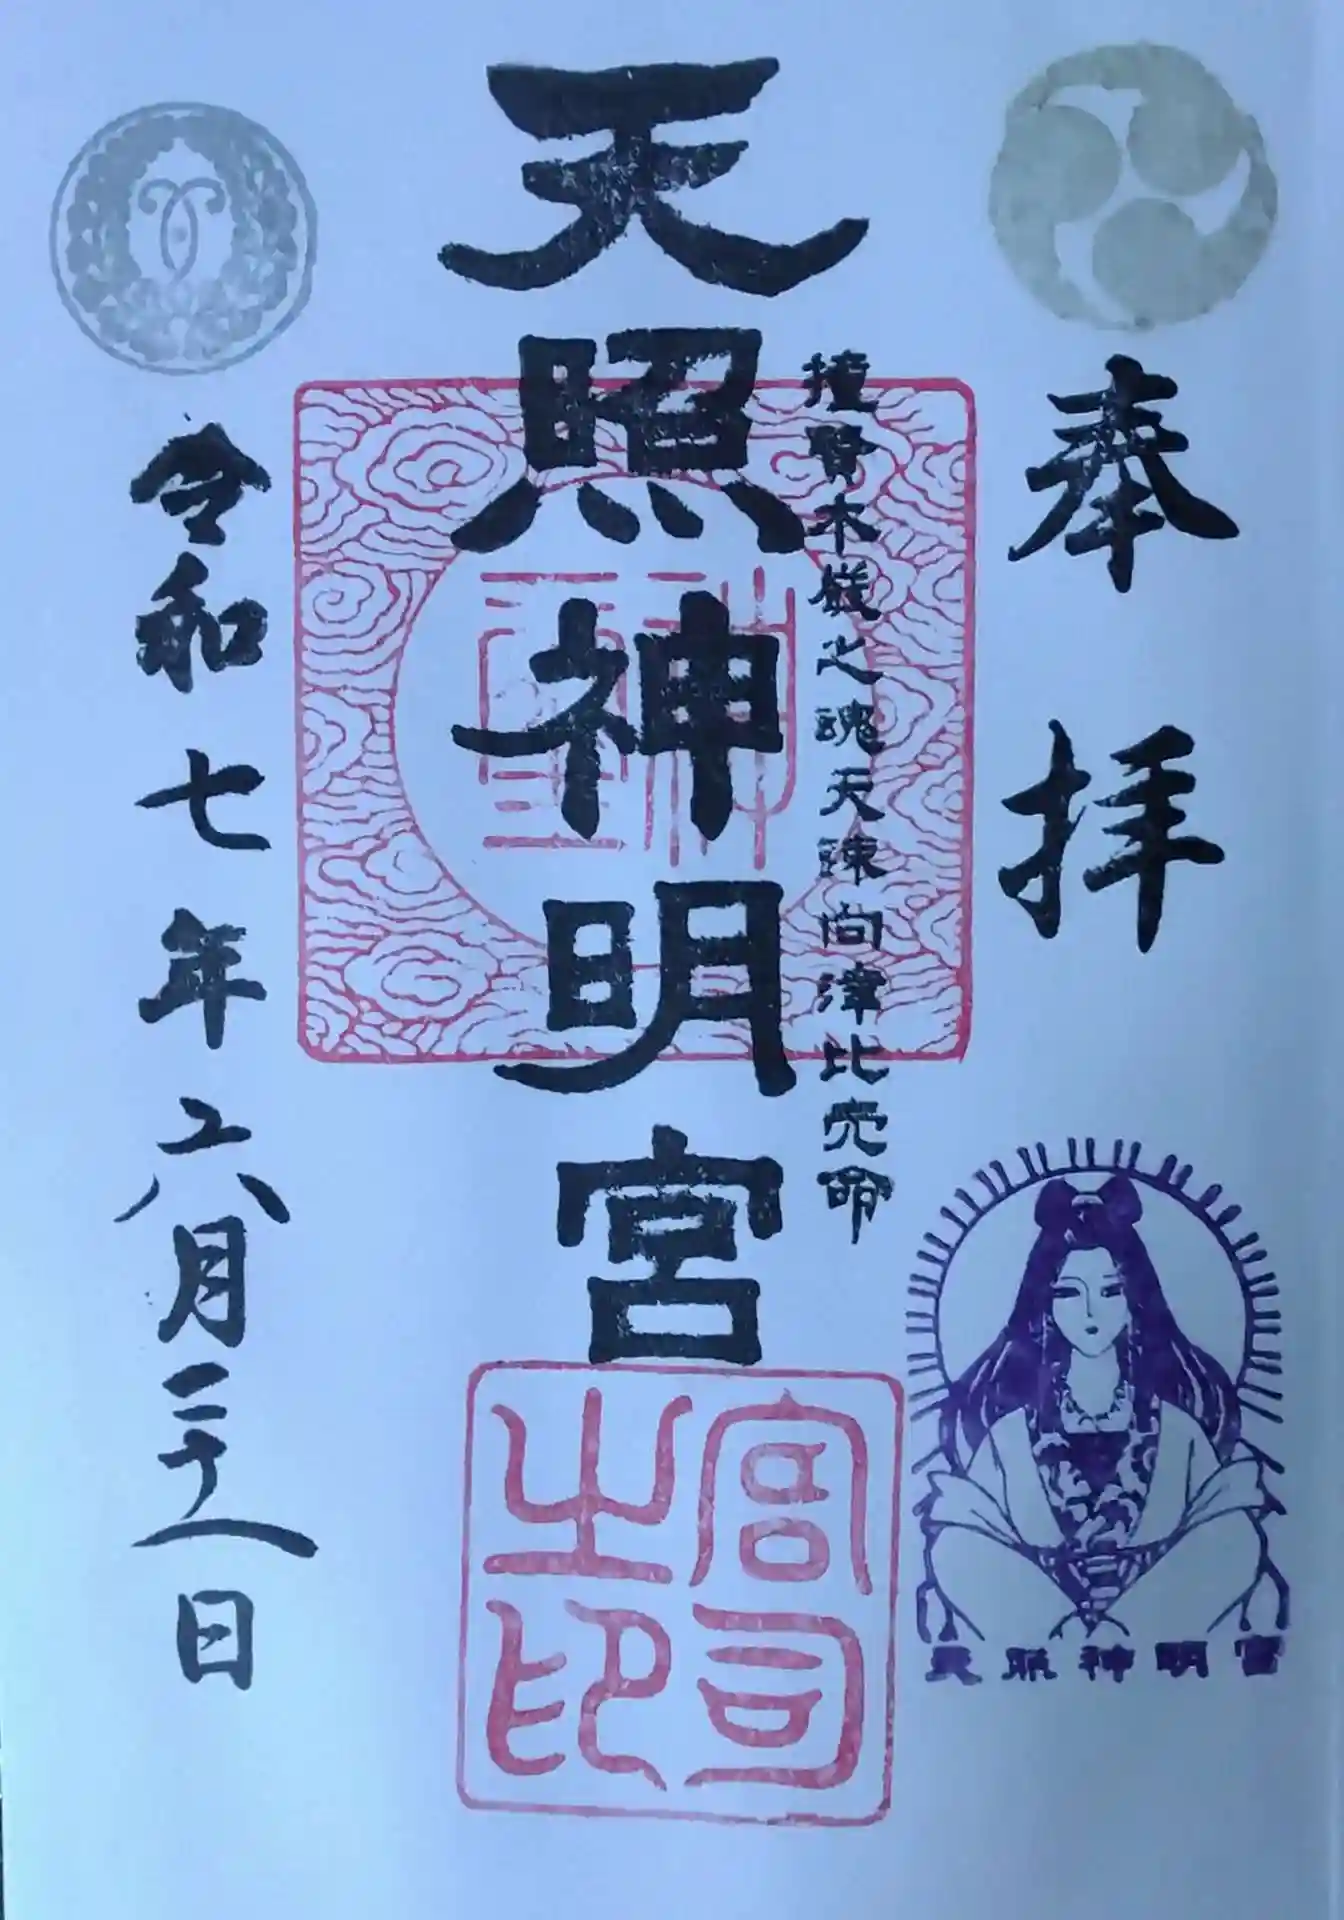 奉拝
撞賢木厳之魂天疎向津比売命
天照神明宮
令和七年六月二十八日
宮司之印
天照神明宮